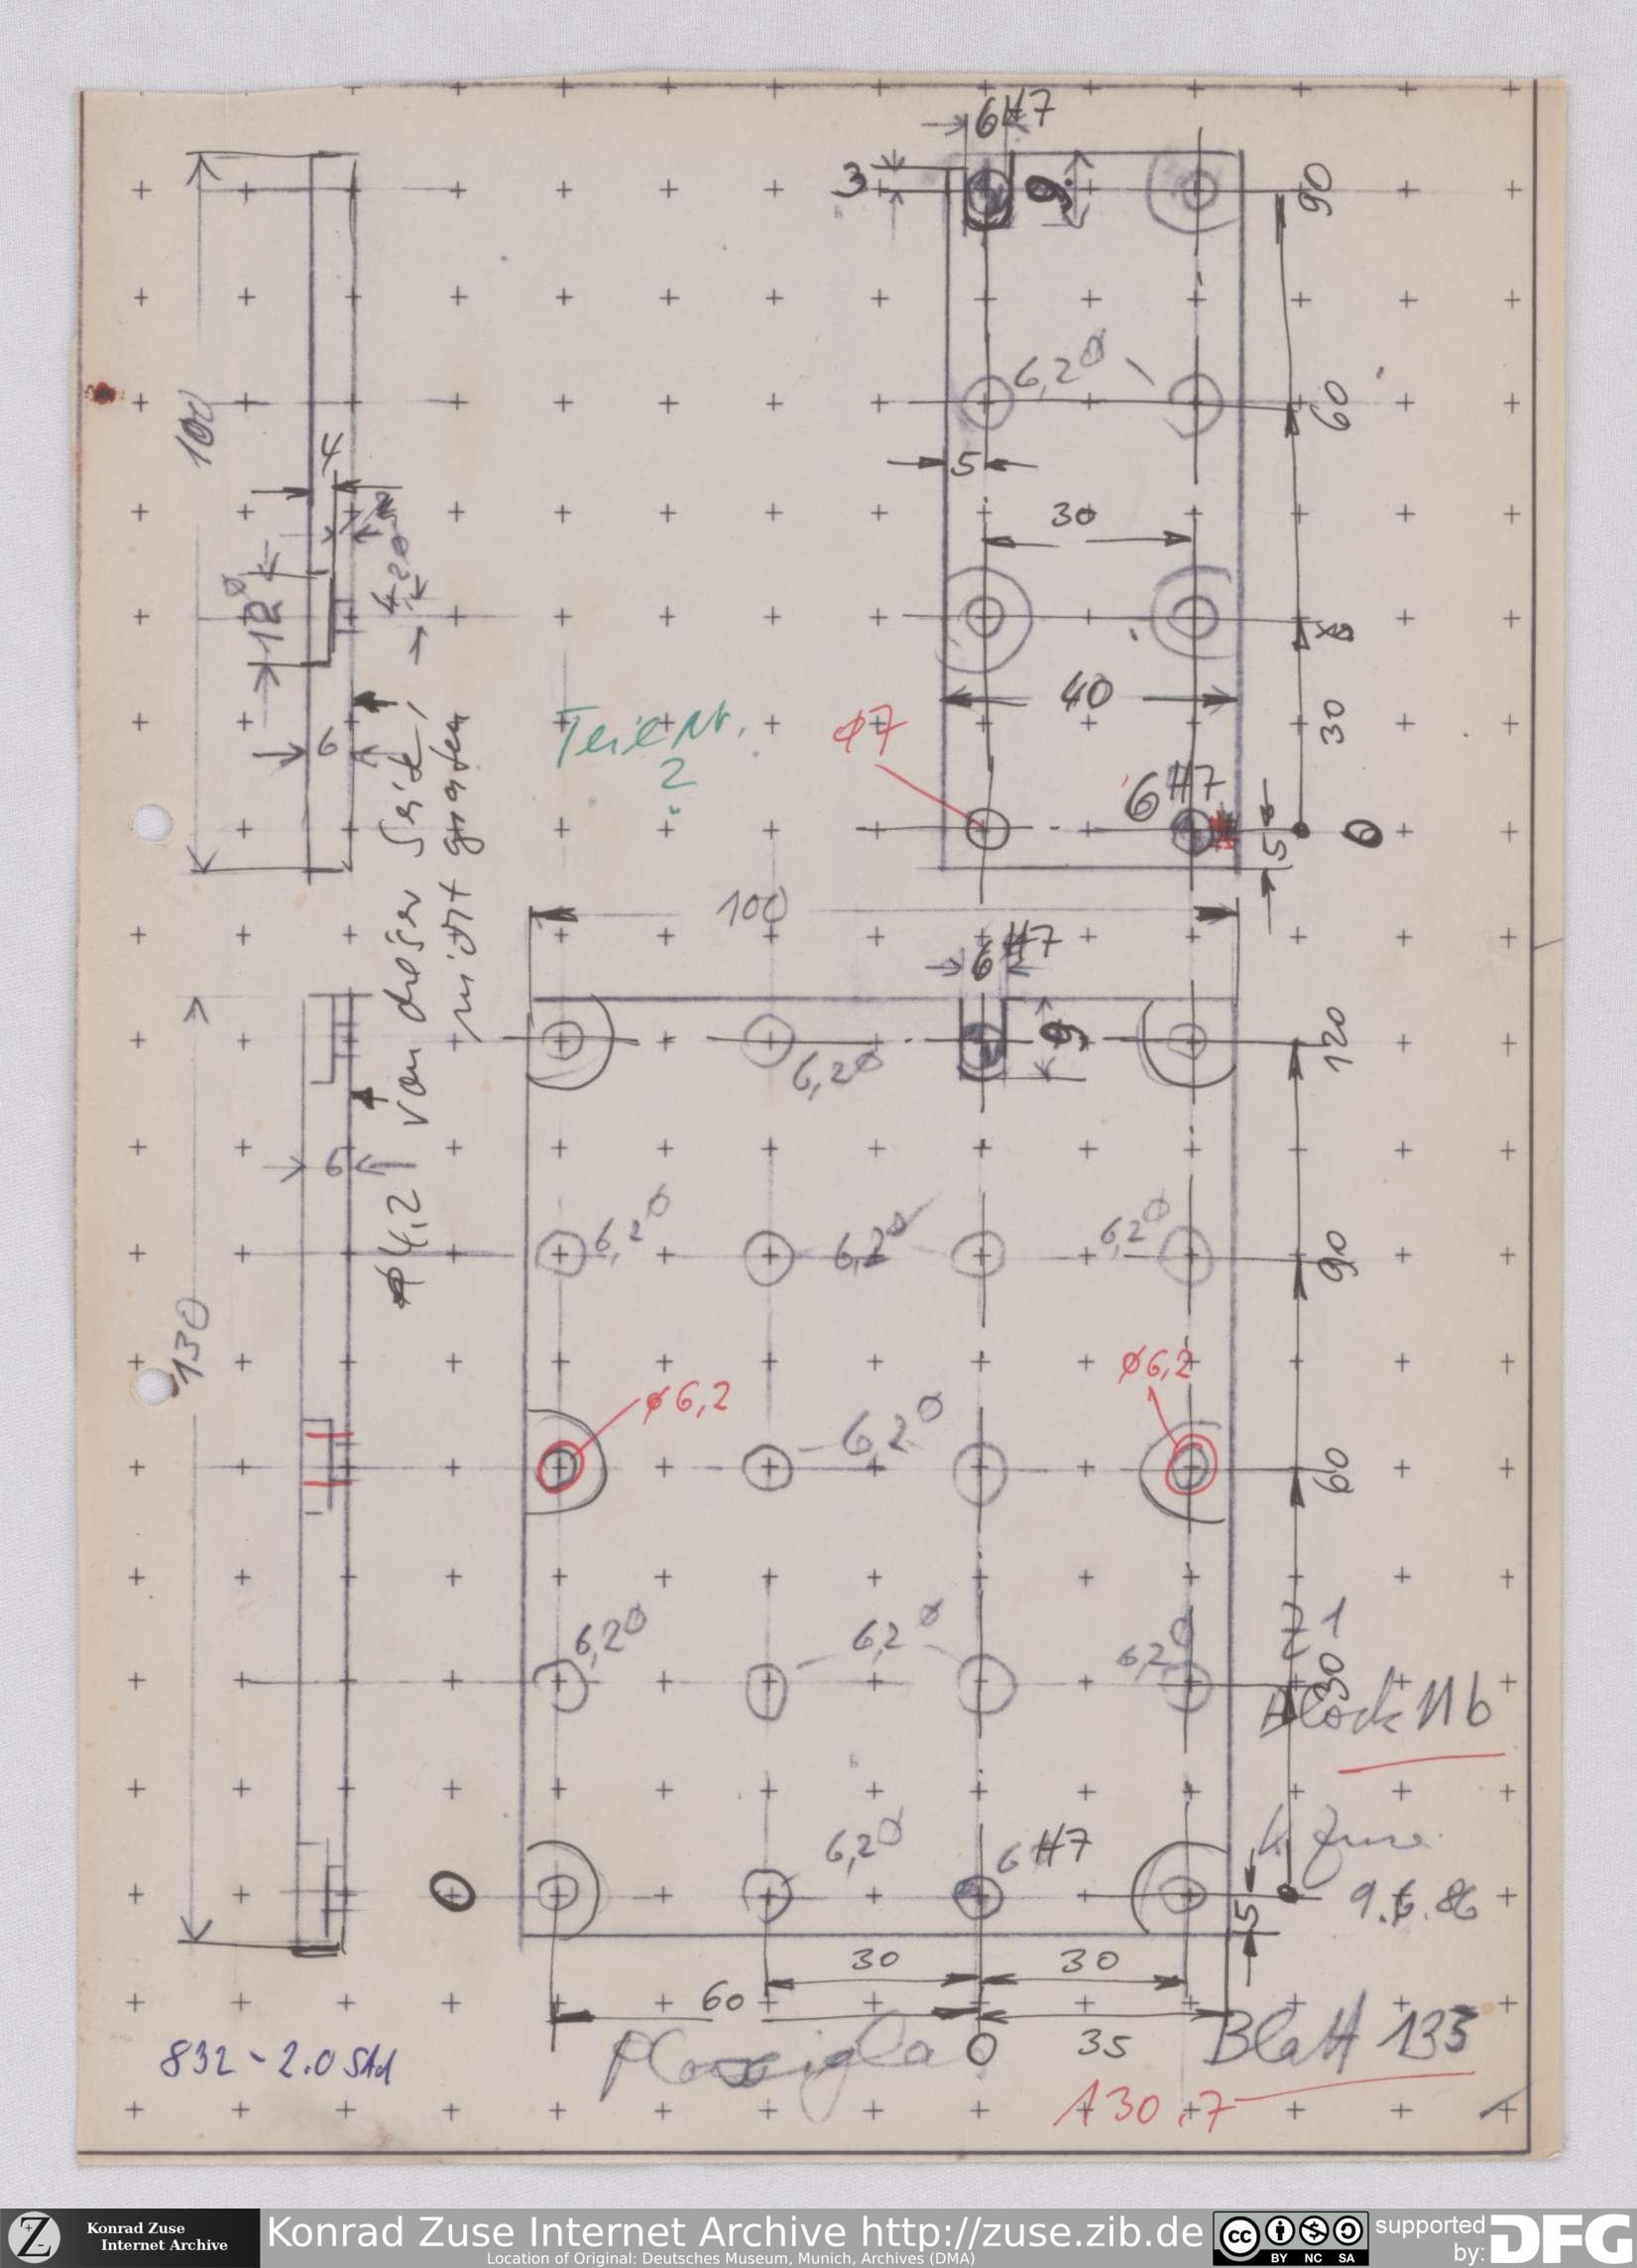 6H7
3
9
90
6,2⌀
60
100
4
5
30
4,2⌀
18⌀
40
6
Teil Nr.
2
⌀7
30
6H7
5
0
100
6H7
120
9
6,2⌀
⌀4,2 von dieser Seite,
nicht
6
6,2⌀
6,2⌀
6,2⌀
90
130
⌀6,2
⌀6,2
6,2⌀
60
6,2⌀
6,2⌀
6,2⌀
Z1
30
Block 11b
6,2⌀
6H7
K. Zuse
0
5
9.6.86
30
30
60
0
35
Blatt 135
832-2.0 Std
A30.7
Konrad Zuse
Internet Archive
Konrad Zuse Internet Archive http://zuse.zib.de
Location of Original: Deutsches Museum, Munich, Archives (DMA)
cc
BY NC SA
supported
by:
DFG